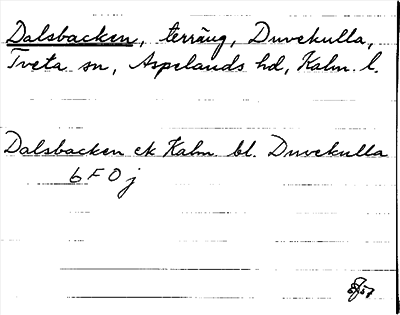 Dalsbacken, terräng, Duvekulla,
Tveta sn, Aspelands hd, Kalm. l.
Dalsbacken ek Kalm bl. Duvekulla
6 F 0 j